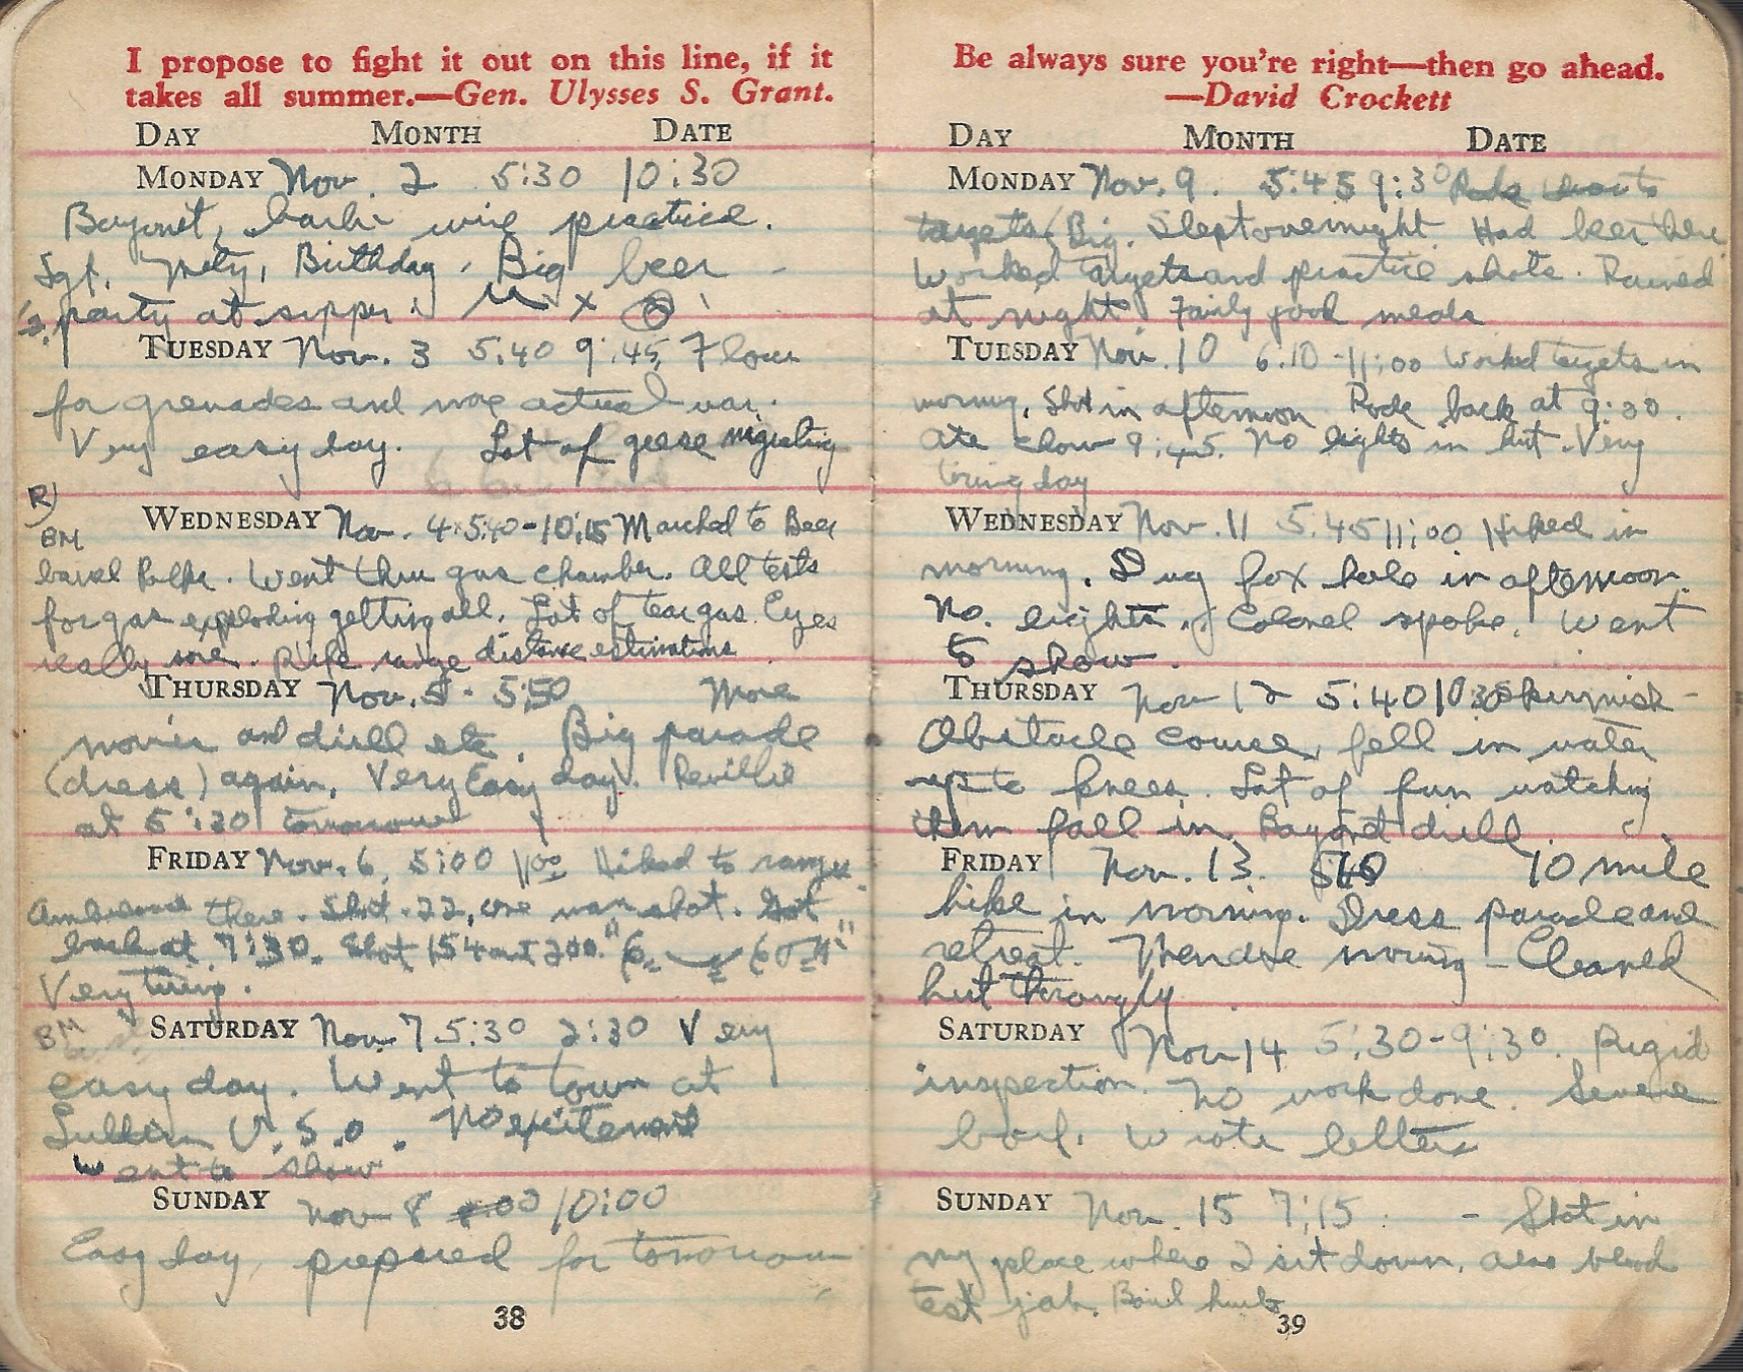 I propose to fight it out on this line, if it
takes all summer.—Gen. Ulysses S. Grant.
DAY MONTH DATE
MONDAY Nov. 2 5:30 10:30
Bayonet, barb wire practice.
Sgt. Birthday. Big beer
party at supper
TUESDAY Nov. 3 5:40 9:45, 7 hour
for grenades and more actual war.
Very easy day. Lot of geese migrating
R)
BM
WEDNESDAY Nov. 4 5:40-10:15 Marched to Beer
barrel Polka. Went thru gas chamber. All tests
for gas exploding getting all. Lot of tear gas. Eyes
really sore. Rifle range distance estimations
THURSDAY Nov. 5 - 5:50 More
movies and drill etc. Big parade
(dress) again. Very Easy day. Reveille
at 5:30 tomorrow
FRIDAY Nov. 6, 5:00 1100 Hiked to range
there. Shot .22, one man shot. Got
back at 7:30. Shot 154 out 200.
Very tiring.
BM
SATURDAY Nov 7 5:30 2:30 Very
easy day. Went to town at
U.S.O. No excitement
Went to show
SUNDAY Nov 8 10:00
Easy day, prepared for tomorrow
38
Be always sure you're right—then go ahead.
—David Crockett
DAY MONTH DATE
MONDAY Nov. 9. 5:45 9:30 to
targets Big. Slept overnight. Had beer here
Worked targets and practice shots. Rained
at night. Fairly good meals
TUESDAY Nov. 10 6:10-11:00 Worked targets in
morning, Shot in afternoon Rode back at 9:30.
Ate chow 9:45. No lights in hut. Very
tiring day
WEDNESDAY Nov. 11 5:45 11:00 Hiked in
morning. Dug fox hole in afternoon.
No lights. Colonel spoke. Went
to show.
THURSDAY Nov 12 5:40 10:30 Skirmish -
Obstacle course, fell in water
up to knees. Lot of fun watching
them fall in. Bayonet drill.
FRIDAY Nov. 13. 10 mile
hike in morning. Dress parade and
retreat. moving - Cleaned
hut throughly
SATURDAY Nov 14 5:30-9:30. Rigid
inspection. No work done. Severe
boil. Wrote letters
SUNDAY Nov. 15 7:15 - Shot in
my place where I sit down. Also blood
test jab. Boil hurts
39